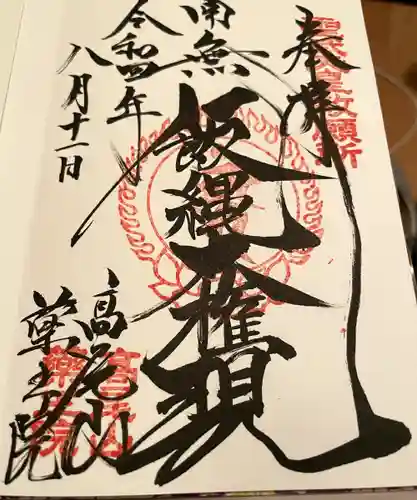 奉拝
聖武天皇勅願所
南無
飯縄大権現
令和四年
八月十一日
高尾山
薬王院
高尾山
薬王院